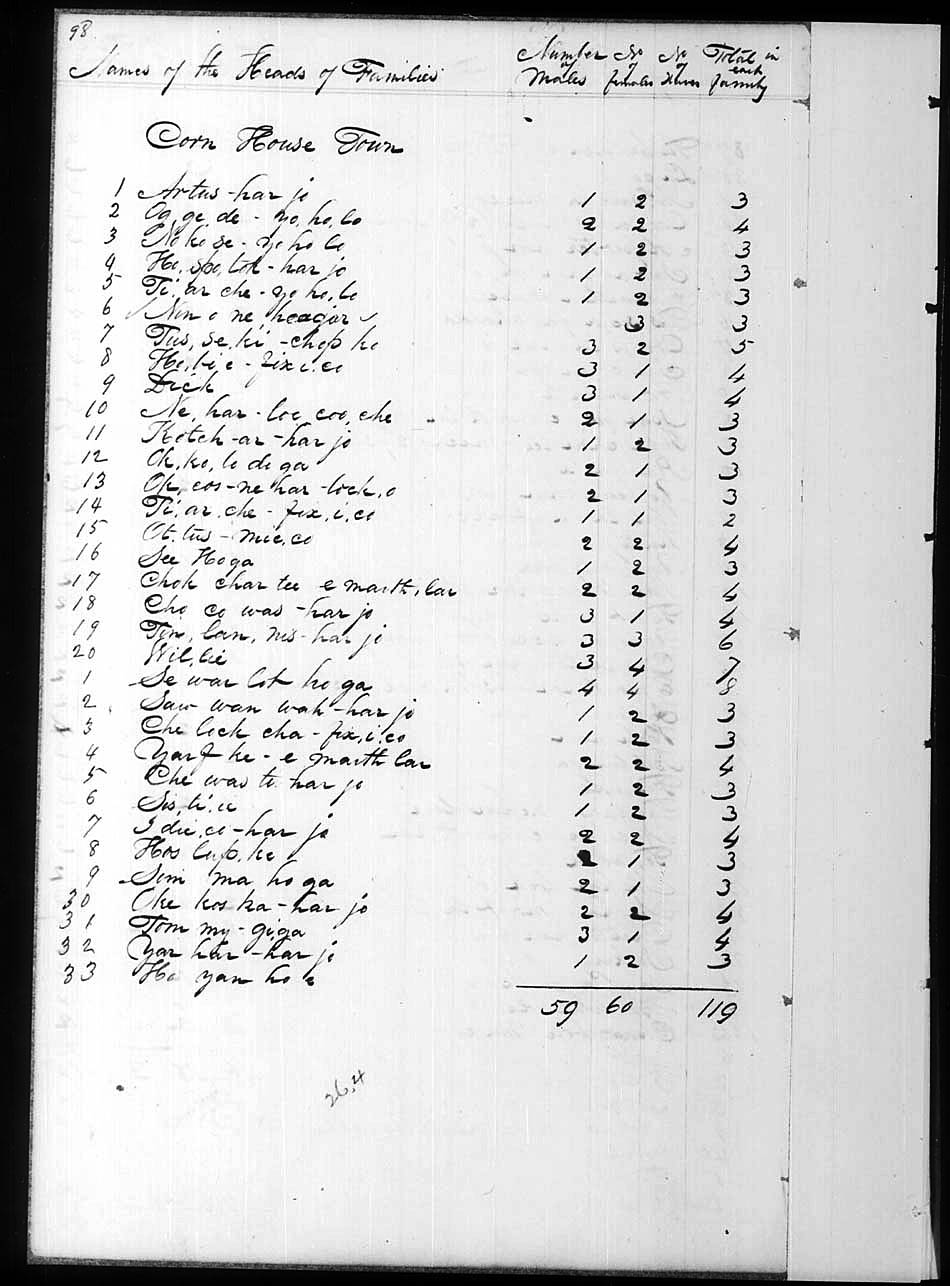 98
Names of the Heads of Families Number of Males No of females No of Slaves Total in each family
Corn House Town
1 Artus-har jo 1 2 3
2 Og, ge de - yo, ho, lo 2 2 4
3 No ko se - yo ho lo 1 2 3
4 Ho, spo, tok - har jo 1 2 3
5 Ti, ar che - yo ho, lo 1 2 3
6 Nin o ne heagar 3 3
7 Tus, se, ki - chop ko 3 2 5
8 Ho, bi, e - fix i, co 3 1 4
9 Dick 3 1 4
10 Ne, har - loc, coo, che 2 1 3
11 Kotch - ar - har jo 1 2 3
12 Ok, ko, lo do ga 2 1 3
13 Ok, cos - ne har - lock, o 2 1 3
14 Ti, ar, che - fix, i, co 1 1 2
15 Ot, tus - mic, co 2 2 4
16 See Hoga 1 2 3
17 Chok char tee - e marth, lar 2 2 4
18 Cho co was - har jo 3 1 4
19 Tim, lan, nis - har jo 3 3 6
20 Wil, lie 3 4 7
1 Se war lot ho ga 4 4 8
2 Saw wan wah - har jo 1 2 3
3 Che lock cha - fix, i, co 1 2 3
4 Yarf ke - e marth lar 2 2 4
5 Che was te har jo 1 2 3
6 Sis, ti, ie 1 2 3
7 I die, co - har jo 2 2 4
8 Hos lup, ke 2 1 3
9 Sim ma ho ga 2 1 3
30 Oke kos ka - har jo 2 2 4
31 Tom my - giga 3 1 4
32 Yar har - har jo 1 2 3
33 Ho yan ho e
59 60 119
26.4